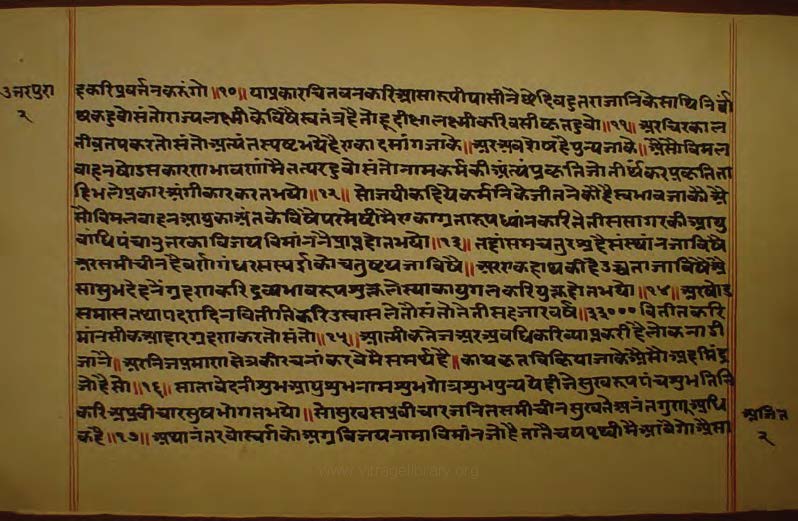 उत्तरपुरा
२
हकरिप्रवर्त्तनकरुंगो॥१०॥ याप्रकारचितवनकरिआसारूपीपासीनैछेदिबहुतराजानिकेसाथिनिर्ग्रं
थहुवोसंतोराज्यलक्ष्मीकेविषैस्वतंत्रहैतोहूदीक्षालक्ष्मीकरिवसीकृतहुवो॥११॥ अरचिरकाल
तीव्रतपकरतोसंतोअत्यंतस्पष्टभयेहैएकादसांगजाके॥ अरअवशेषहैपुन्यजाके॥ अैसोविमल
वाहनषोडसकारणभावणांमैतत्परहुवोसंतोनामकर्मकीअंत्यप्रकृतिजोतीर्थंकरप्रकृतिता
हिभलेप्रकारअंगीकारकरतभयो॥१२॥ सोजयीकहियेकर्मनिकेजीतनेकोहैस्वभावजाकोअै
सोविमलवाहनआयुकाअंतकेविषैपरमेष्ठीमैएकाग्रतारूपध्यांनकरितेतीससागरकीआयु
बांधिपंचानुत्तरकाविजयविमांननैप्राप्तहोतभयो॥१३॥ तहांसमचतुरश्रहैसंस्थांनजाविषै
अरसमीचीनहैवर्णगंधरसस्पर्शकोचतुष्टयजाविषै॥ अरएकहाथकीहैउच्चताजाविषैअै
साशुभदेहनैंग्रहणकरिद्रव्यभावरूपशुक्ललेस्याकायुगलकरियुक्तहोतभयो॥१४॥ अरषोड
समासतथापदरादिनवितीतिकरिउस्वासलेतोसंतोतेतीसहजारवर्ष३३००० वितीतकरि
मांनसीकआहारग्रहणकरतोसंतो॥१५॥ आत्मीकतेजअरअवधिकरिव्याप्तकरीहैलोकनाडी
जानै॥ अरनिजप्रमाणक्षेत्रकीरचनांकरवेमैसमर्थहै॥ कायकृतविक्रियाजाकेअैसोअहमिंद्र
जोहैसो॥१६॥ सातावेदनीशुभआयुशुभनामशुभगोत्रशुभपुन्ययेहीजेसुखरूपपंचशुभतिनि
करिअप्रवीचारसुषभोगतभयो॥ सोसुखसप्रवीचारजनितसमीचीनसुखतेअनंतगुणाअधि
कहै॥१७॥ अथानंतरवोस्वर्गकोअग्रविजयनामाविमांनजोहैतातैचयपृथ्वीमैआवेगोअैसा
अजित
२
www.vitragelibrary.org